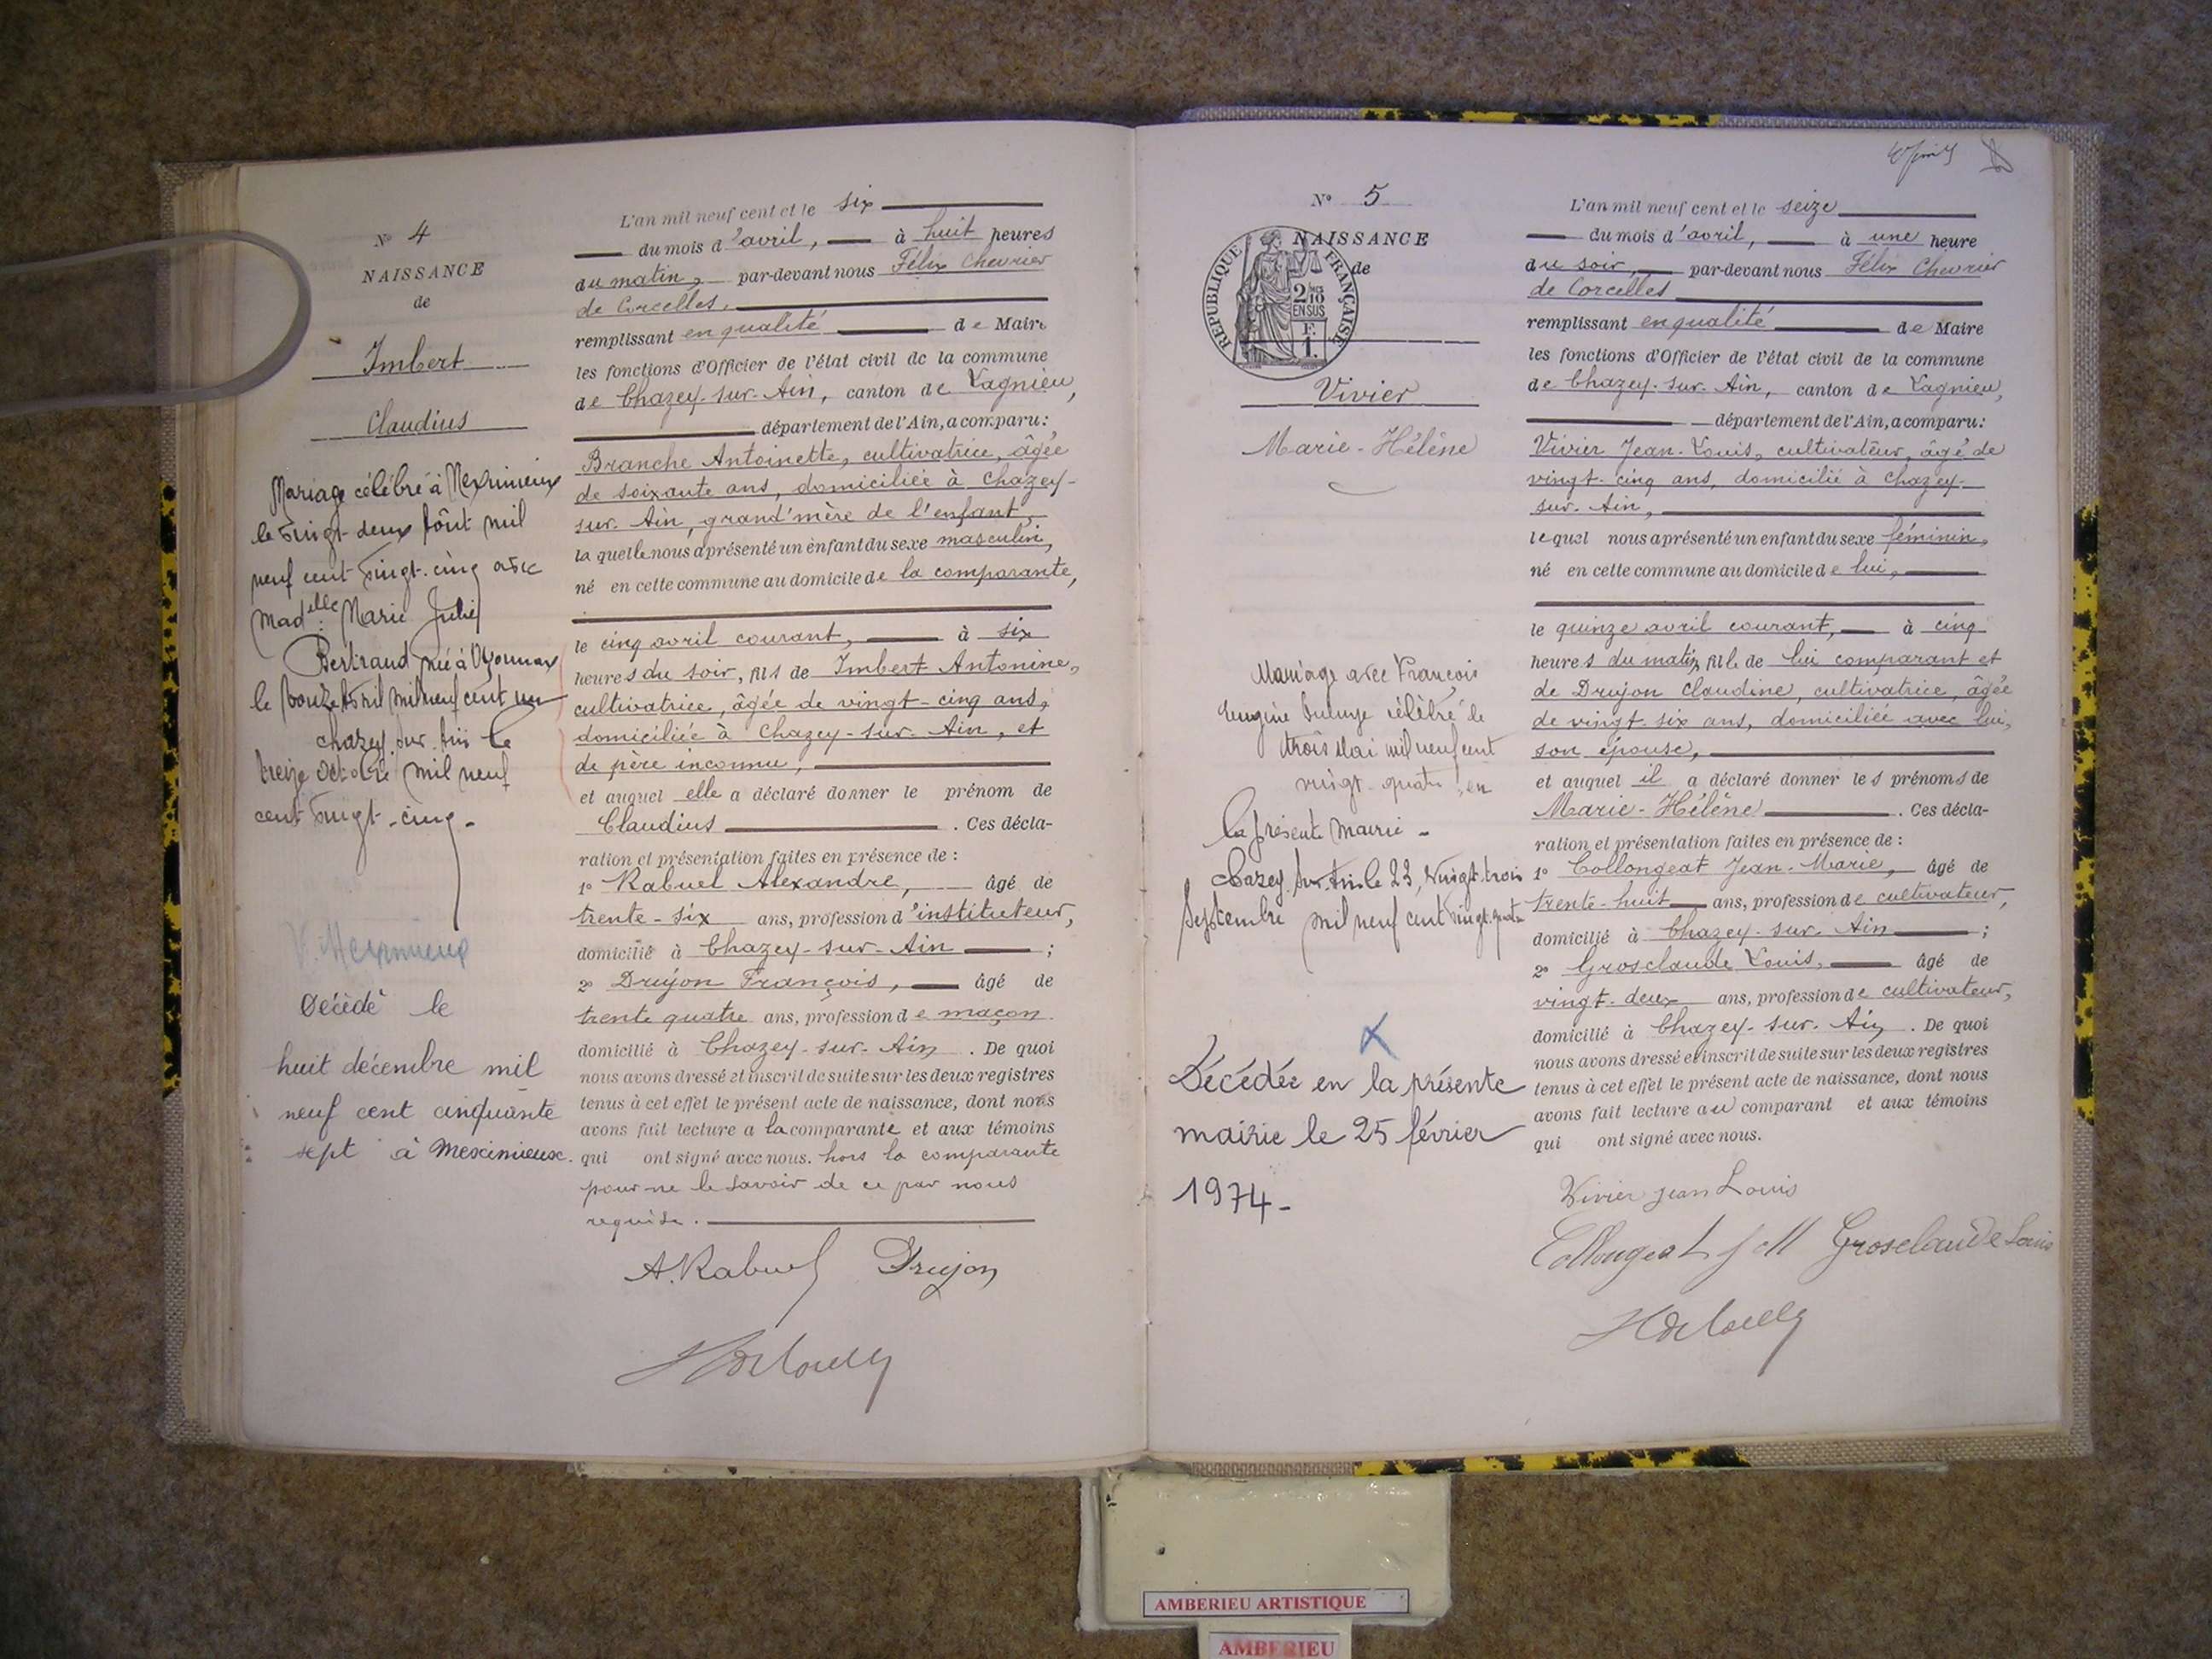 N° 4
NAISSANCE
de
Imbert
Claudius
Mariage célébré à Meximieux
le vingt-deux Août mil
neuf cent vingt-cinq avec
Mad.elle Marie Julie
Bertrand née à Oyonnax
le douze Avril mil neuf cent un
Chazey-sur-Ain le
treize Octobre mil neuf
cent vingt-cinq -
V. Meximieux
Décédé le
huit décembre mil
neuf cent cinquante
sept à Meximieux.
L'an mil neuf cent et le six
du mois d'avril, à huit heures
du matin, par-devant nous Félix Chevrier
de Corcelles,
remplissant en qualité de Maire
les fonctions d'Officier de l'état civil de la commune
de Chazey-sur-Ain, canton de Lagnieu,
département de l'Ain, a comparu:
Branche Antoinette, cultivatrice, âgée
de soixante ans, domiciliée à Chazey-
sur-Ain, grand'mère de l'enfant,
la quelle nous a présenté un enfant du sexe masculin,
né en cette commune au domicile de la comparante,
le cinq avril courant, à six
heures du soir, fils de Imbert Antonine,
cultivatrice, âgée de vingt-cinq ans,
domiciliée à Chazey-sur-Ain, et
de père inconnu,
et auquel elle a déclaré donner le prénom de
Claudius . Ces décla-
ration et présentation faites en présence de :
1° Rabuel Alexandre, âgé de
trente-six ans, profession d'instituteur,
domicilié à Chazey-sur-Ain ;
2° Drujon François, âgé de
trente quatre ans, profession de maçon
domicilié à Chazey-sur-Ain . De quoi
nous avons dressé et inscrit de suite sur les deux registres
tenus à cet effet le présent acte de naissance, dont nous
avons fait lecture a la comparante et aux témoins
qui ont signé avec nous. hors la comparante
pour ne le savoir de ce par nous
requise.
A. Rabuel Drujon
N° 5
NAISSANCE
de
RÉPUBLIQUE FRANÇAISE
2/10
EN SUS
F.
1.
Vivier
Marie-Hélène
Mariage avec François
Eugène célébré le
trois Mai mil neuf cent
vingt-quatre en
la présente Mairie -
Chazey-sur-Ain le 23, vingt-trois
Septembre mil neuf cent vingt-quatre
Décédée en la présente
mairie le 25 février
1974-
L'an mil neuf cent et le seize
du mois d'avril, à une heure
du soir, par-devant nous Félix Chevrier
de Corcelles
remplissant en qualité de Maire
les fonctions d'Officier de l'état civil de la commune
de Chazey-sur-Ain, canton de Lagnieu,
département de l'Ain, a comparu:
Vivier Jean-Louis, cultivateur, âgé de
vingt-cinq ans, domicilié à Chazey-
sur-Ain,
lequel nous a présenté un enfant du sexe féminin,
né en cette commune au domicile de lui,
le quinze avril courant, à cinq
heures du matin, fille de lui comparant et
de Drujon Claudine, cultivatrice, âgée
de vingt-six ans, domiciliée avec lui,
son épouse,
et auquel il a déclaré donner les prénoms de
Marie-Hélène . Ces décla-
ration et présentation faites en présence de :
1° Collongeat Jean-Marie, âgé de
trente-huit ans, profession de cultivateur,
domicilié à Chazey-sur-Ain ;
2° Grosclaude Louis, âgé de
vingt-deux ans, profession de cultivateur,
domicilié à Chazey-sur-Ain . De quoi
nous avons dressé et inscrit de suite sur les deux registres
tenus à cet effet le présent acte de naissance, dont nous
avons fait lecture au comparant et aux témoins
qui ont signé avec nous.
Vivier jean Louis
Collongeat J M Grosclaude Louis
AMBERIEU ARTISTIQUE
AMBERIEU